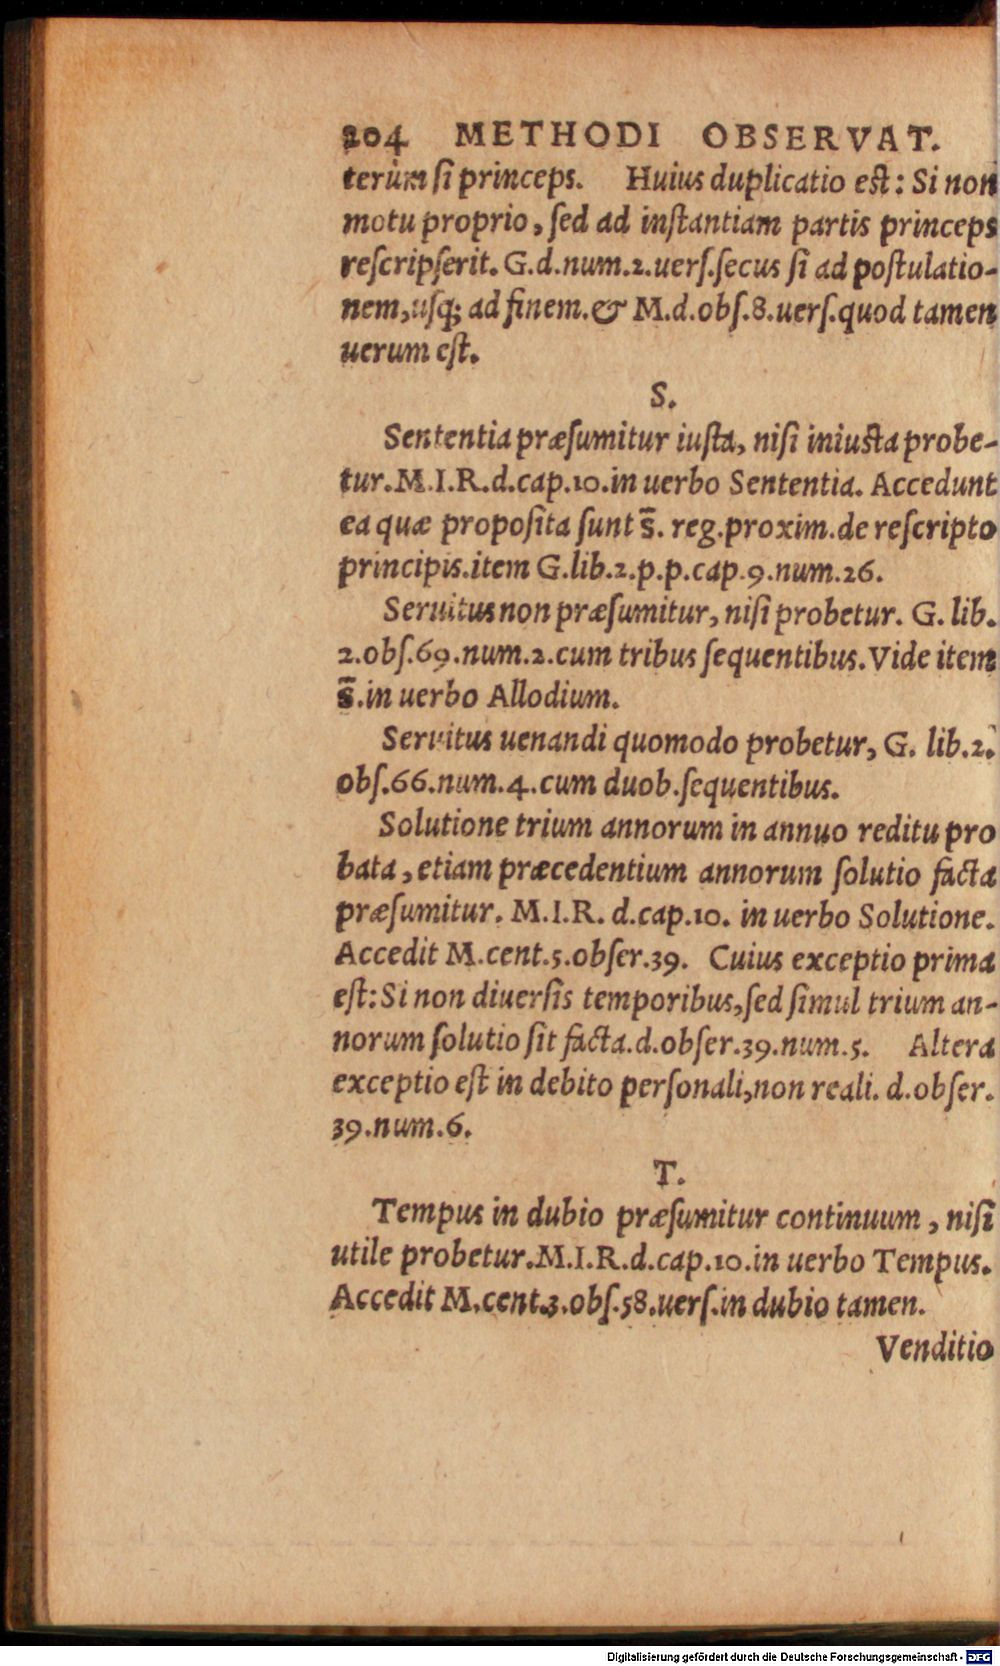 204 METHODI OBSERVAT.
terùm ſi princeps. Huius duplicatio eſt: Si non
motu proprio, ſed ad inſtantiam partis princeps
reſcripſerit. G.d.num.2.uerſ.ſecus ſi ad poſtulatio-
nem, uſq; ad finem. & M.d.obſ.8.uerſ.quod tamen
uerum eſt.
S.
Sententia præſumitur iuſta, niſi iniuſta probe-
tur. M.I.R.d.cap.10.in uerbo Sententia. Accedunt
ea quæ propoſita ſunt s̄. reg.proxim.de reſcripto
principis.item G.lib.2.p.p.cap.9.num.26.
Seruitus non præſumitur, niſi probetur. G. lib.
2.obſ.69.num.2.cum tribus ſequentibus. Vide item
s̄.in uerbo Allodium.
Seruitus uenandi quomodo probetur, G. lib.2.
obſ.66.num.4.cum duob.ſequentibus.
Solutione trium annorum in annuo reditu pro
bata, etiam præcedentium annorum ſolutio facta
præſumitur. M.I.R. d.cap.10. in uerbo Solutione.
Accedit M.cent.5.obſer.39. Cuius exceptio prima
eſt: Si non diuerſis temporibus, ſed ſimul trium an-
norum ſolutio ſit facta.d.obſer.39.num.5. Altera
exceptio eſt in debito perſonali, non reali. d.obſer.
39.num.6.
T.
Tempus in dubio præſumitur continuum, niſi
utile probetur. M.I.R.d.cap.10.in uerbo Tempus.
Accedit M.cent.3.obſ.58.uerſ.in dubio tamen.
Venditio
Digitalisierung gefördert durch die Deutsche Forschungsgemeinschaft - DFG